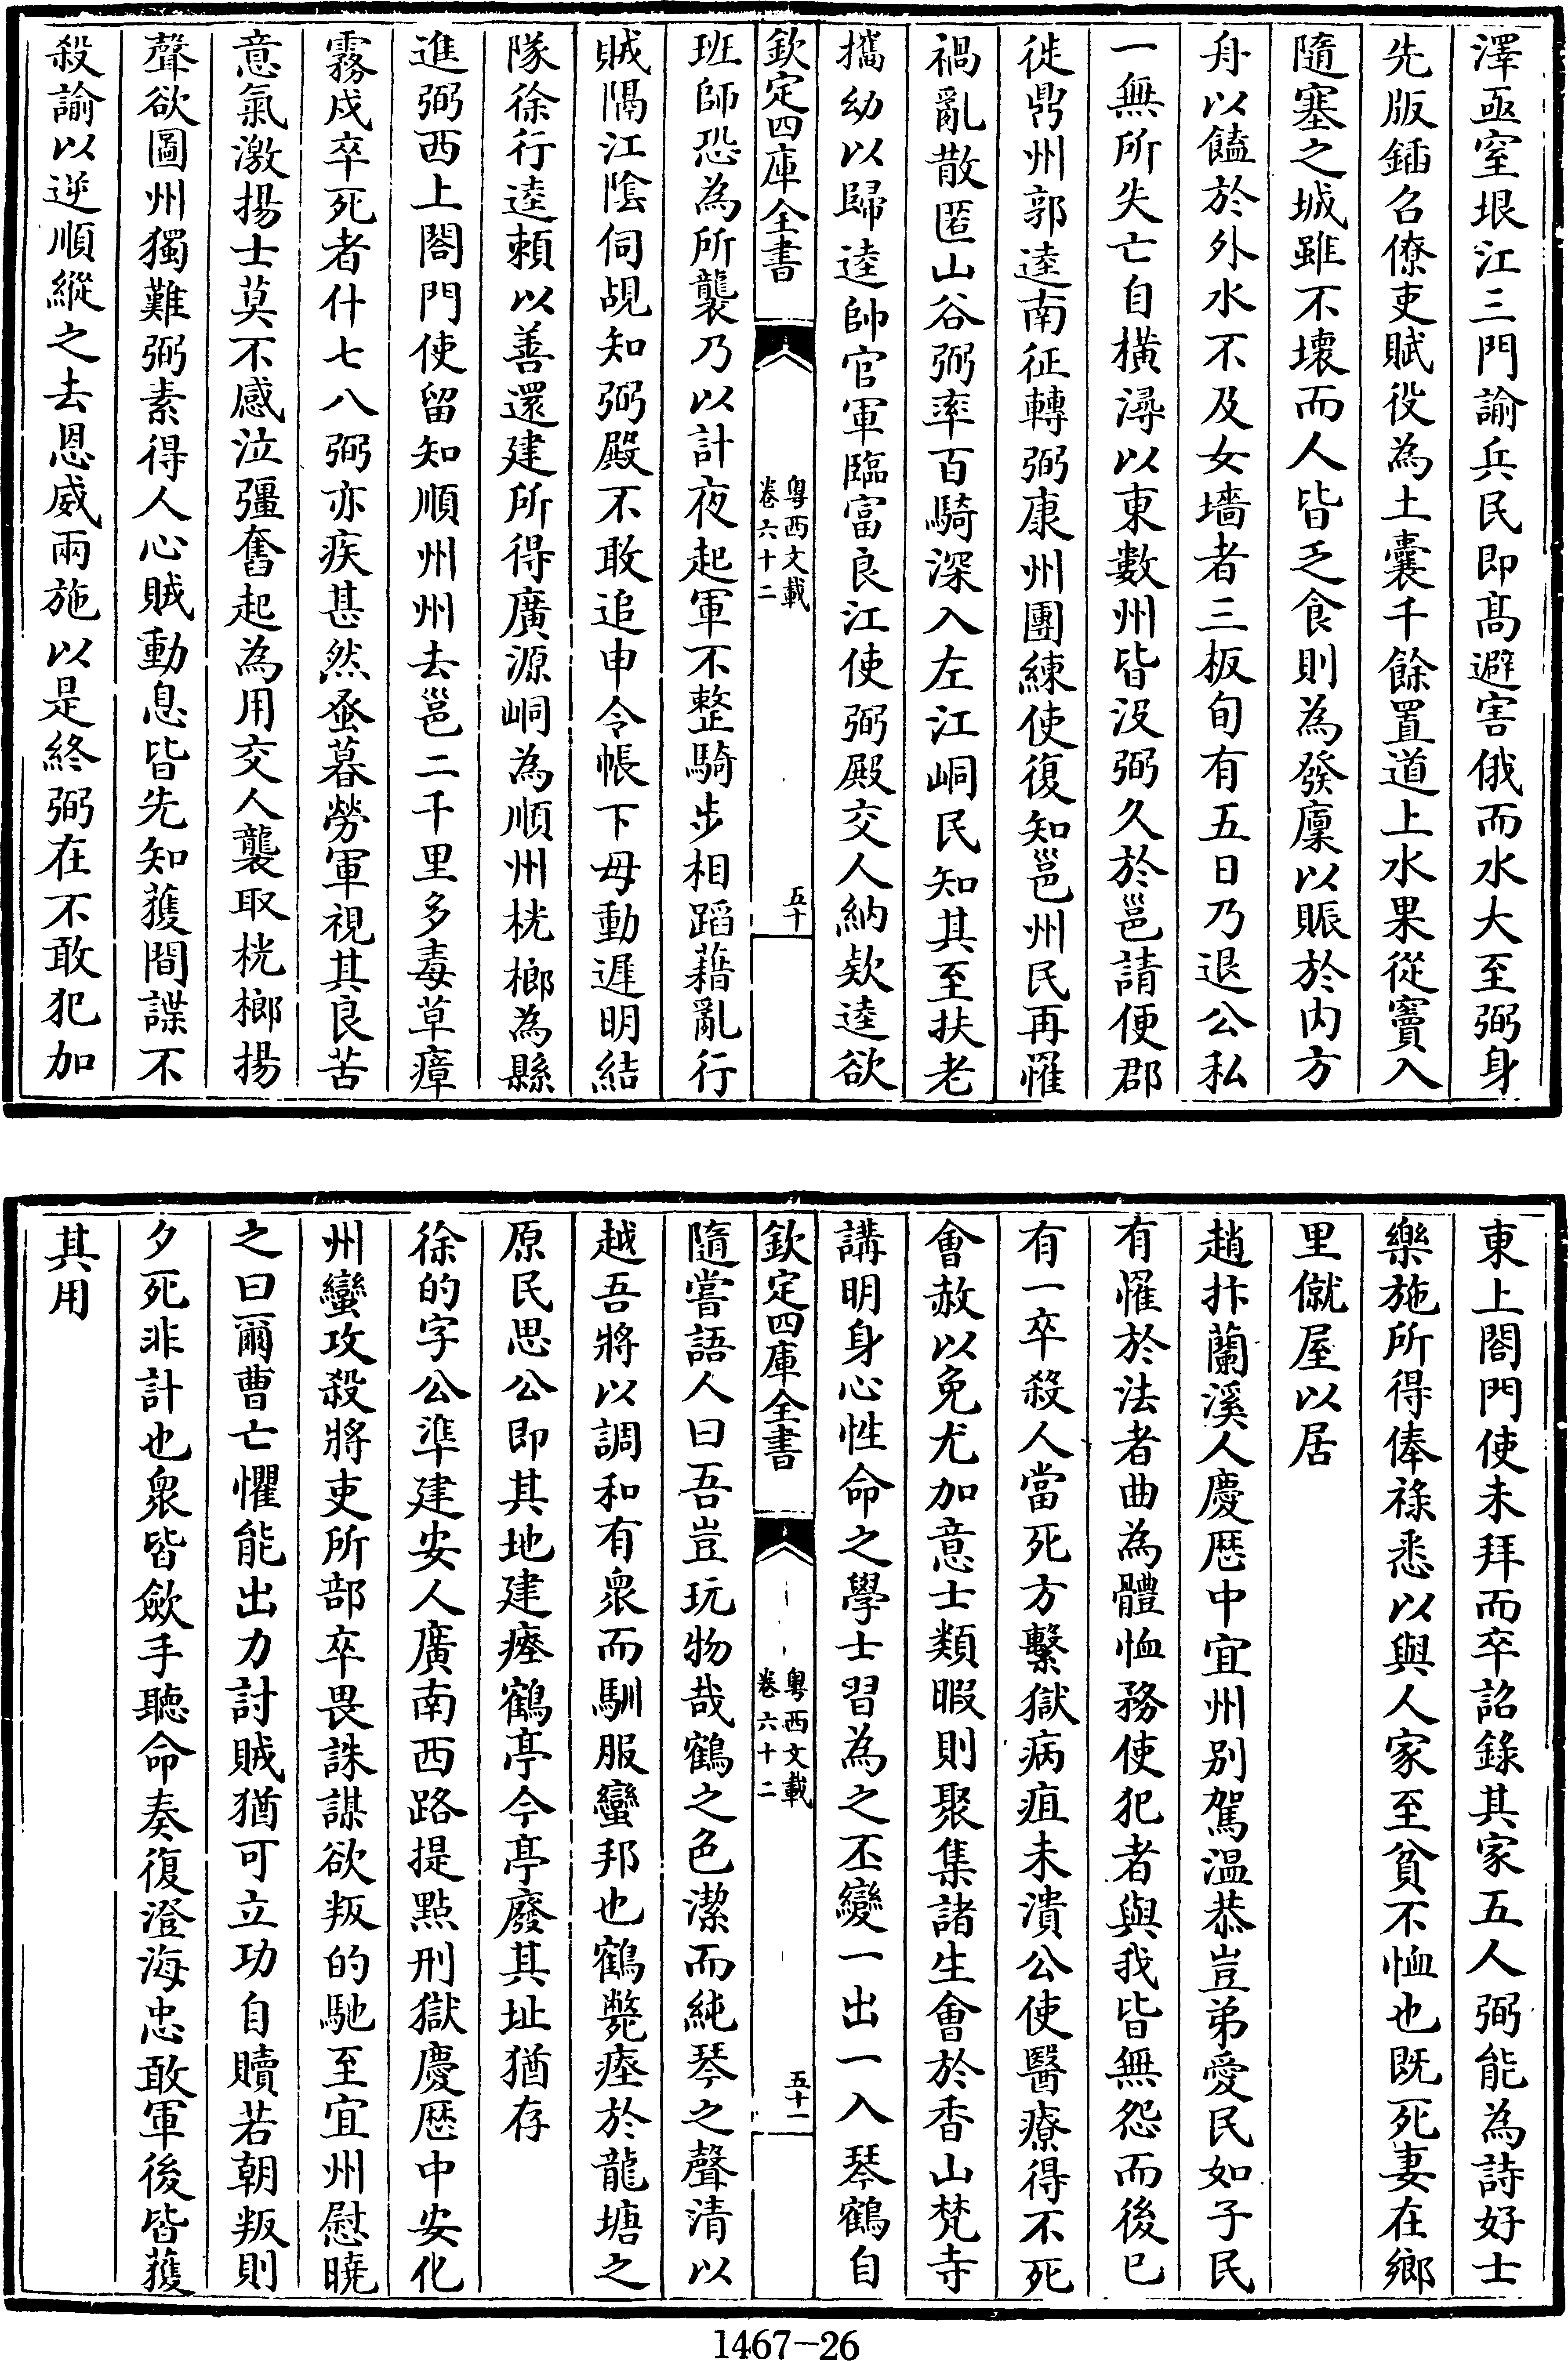 澤亟窒垠江三門諭兵民即髙避害俄而水大至弼身
先版鍤召僚吏賦役為土囊千餘置道上水果從竇入
隨塞之城雖不壞而人皆乏食則為發廩以賑於内方
舟以饁於外水不及女墻者三板旬有五日乃退公私
一無所失亡自橫潯以東數州皆沒弼久於邕請便郡
徙鼎州郭逵南征轉弼康州團練使復知邕州民再罹
禍亂散匿山谷弼率百騎深入左江峒民知其至扶老
攜幼以歸逵帥官軍臨富良江使弼殿交人納欵逵欲
欽定四庫全書
粤西文載
卷六十二
五十
班師恐為所襲乃以計夜起軍不整騎步相蹈藉亂行
賊隔江隂伺覘知弼殿不敢追申令帳下毋動遲明結
隊徐行逵頼以善還建所得廣源峒為順州桄榔為縣
進弼西上閤門使留知順州州去邕二千里多毒草瘴
霧戍卒死者什七八弼亦疾甚然蚤暮勞軍視其良苦
意氣激揚士莫不感泣彊奮起為用交人襲取桄榔揚
聲欲圖州獨難弼素得人心賊動息皆先知獲間諜不
殺諭以逆順縱之去恩威兩施以是終弼在不敢犯加
東上閤門使未拜而卒詔錄其家五人弼能為詩好士
樂施所得俸祿悉以與人家至貧不恤也既死妻在鄉
里僦屋以居
趙抃蘭溪人慶厯中宜州别駕温恭豈弟愛民如子民
有罹於法者曲為體恤務使犯者與我皆無怨而後已
有一卒殺人當死方繫獄病疽未潰公使醫療得不死
會赦以免尤加意士類暇則聚集諸生會於香山梵寺
講明身心性命之學士習為之丕變一出一入琴鶴自
欽定四庫全書
粤西文載
卷六十二
五十一
隨嘗語人曰吾豈玩物哉鶴之色潔而純琴之聲清以
越吾將以調和有衆而馴服蠻邦也鶴斃瘞於龍塘之
原民思公即其地建瘞鶴亭今亭廢其址猶存
徐的字公準建安人廣南西路提點刑獄慶厯中安化
州蠻攻殺將吏所部卒畏誅謀欲叛的馳至宜州慰曉
之曰爾曹亡懼能出力討賊猶可立功自贖若朝叛則
夕死非計也衆皆歛手聽命奏復澄海忠敢軍後皆獲
其用
1467-26